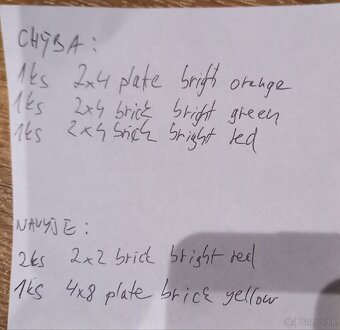 CHÝBA:
1ks 2x4 plate bright orange
1ks 2x4 brick bright green
1ks 2x4 brick bright red
NAVYŠE:
2ks 2x2 brick bright red
1ks 4x8 plate brick yellow
Bazos.sk